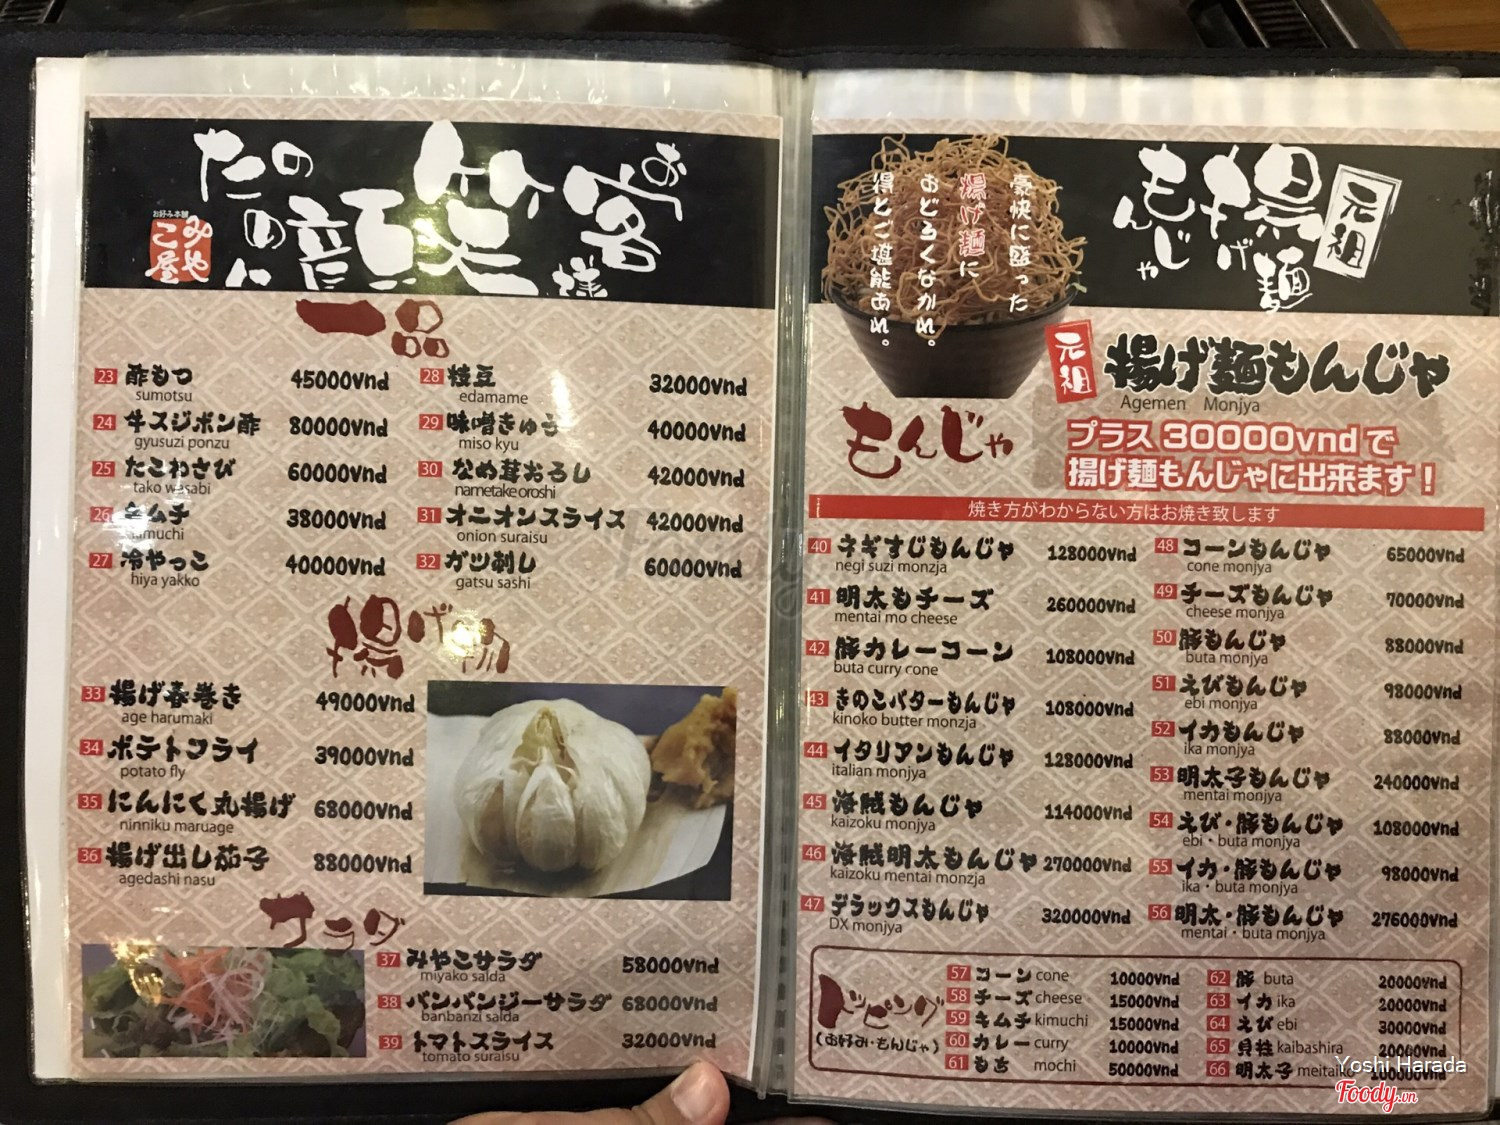 お客様の笑顔のために
お好み本舗
みやこ屋
一品
23 酢もつ 45000vnd
sumotsu
24 牛スジポン酢 80000vnd
gyusuzi ponzu
25 たこわさび 60000vnd
tako wasabi
26 キムチ 38000vnd
kimuchi
27 冷やっこ 40000vnd
hiya yakko
28 枝豆 32000vnd
edamame
29 味噌きゅう 40000vnd
miso kyu
30 なめ茸おろし 42000vnd
nametake oroshi
31 オニオンスライス 42000vnd
onion suraisu
32 ガツ刺し 60000vnd
gatsu sashi
揚げ物
33 揚げ春巻き 49000vnd
age harumaki
34 ポテトフライ 39000vnd
potato fly
35 にんにく丸揚げ 68000vnd
ninniku maruage
36 揚げ出し茄子 88000vnd
agedashi nasu
サラダ
37 みやこサラダ 58000vnd
miyako salda
38 バンバンジーサラダ 68000vnd
banbanzi salda
39 トマトスライス 32000vnd
tomato suraisu
元祖
揚げ麺
もんじゃ
豪快に盛った
揚げ麺に
おどろくなかれ。
得とご堪能あれ。
もんじゃ
元祖 揚げ麺もんじゃ
Agemen Monjya
プラス 30000vnd で
揚げ麺もんじゃに出来ます!
焼き方がわからない方はお焼き致します
40 ネギすじもんじゃ 128000vnd
negi suzi monzja
41 明太もチーズ 260000vnd
mentai mo cheese
42 豚カレーコーン 108000vnd
buta curry cone
43 きのこバターもんじゃ 108000vnd
kinoko butter monzja
44 イタリアンもんじゃ 128000vnd
italian monjya
45 海賊もんじゃ 114000vnd
kaizoku monjya
46 海賊明太もんじゃ 270000vnd
kaizoku mentai monzja
47 デラックスもんじゃ 320000vnd
DX monjya
48 コーンもんじゃ 65000vnd
cone monjya
49 チーズもんじゃ 70000vnd
cheese monjya
50 豚もんじゃ 88000vnd
buta monjya
51 えびもんじゃ 98000vnd
ebi monjya
52 イカもんじゃ 88000vnd
ika monjya
53 明太子もんじゃ 240000vnd
mentai monjya
54 えび・豚もんじゃ 108000vnd
ebi・buta monjya
55 イカ・豚もんじゃ 98000vnd
ika・buta monjya
56 明太・豚もんじゃ 276000vnd
mentai・buta monjya
トッピング
(お好み・もんじゃ)
57 コーン cone 10000vnd
58 チーズ cheese 15000vnd
59 キムチ kimuchi 15000vnd
60 カレー curry 10000vnd
61 もち mochi 50000vnd
62 豚 buta 20000vnd
63 イカ ika 20000vnd
64 えび ebi 30000vnd
65 貝柱 kaibashira 20000vnd
66 明太子 meitaiko 100000vnd
Yoshi Harada
Foody.vn